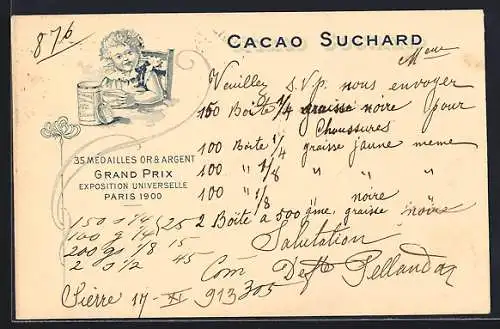 876
CACAO SUCHARD
Meme
Veuillez s.v.p. nous envoyer
150 Boite 1/4 graisse noire pour
Choussures
100 Boite 1/4 graisse jaune meme
100 " 1/8 " " "
100 " 1/8 " noire
2 Boite à 500 gme, graisse noire
Salutation
35 MÉDAILLES OR & ARGENT
GRAND PRIX
EXPOSITION UNIVERSELLE
PARIS 1900
150 s 1/4 25
100 g 1/4
200 gs 1/8 15
2 s 1/2 45
Com Pellandon
Sierre 17 - XI 913 305